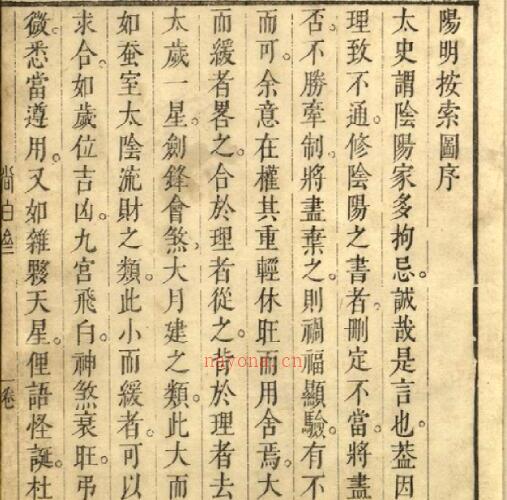 陽明按索圖序
太史謂陰陽家多拘忌。誠哉是言也。葢因
理致不通。修陰陽之書者。刪定不當。將盡
否。不勝牽制。將盡棄之。則禍福顯驗。有不
而可。余意在權其重輕。休旺而用舍焉。大
而緩者畧之。合於理者從之。背於理者去
太歲一星。劍鋒會煞。大月建之類。此大而
如蚕室太陰流財之類。此小而緩者。可以
求合。如歲位吉凶。九宮飛白。神煞衰旺。弔
微。悉當遵用。又如雜夥天星。俚語怪誕。杜
卷
nayona.cn